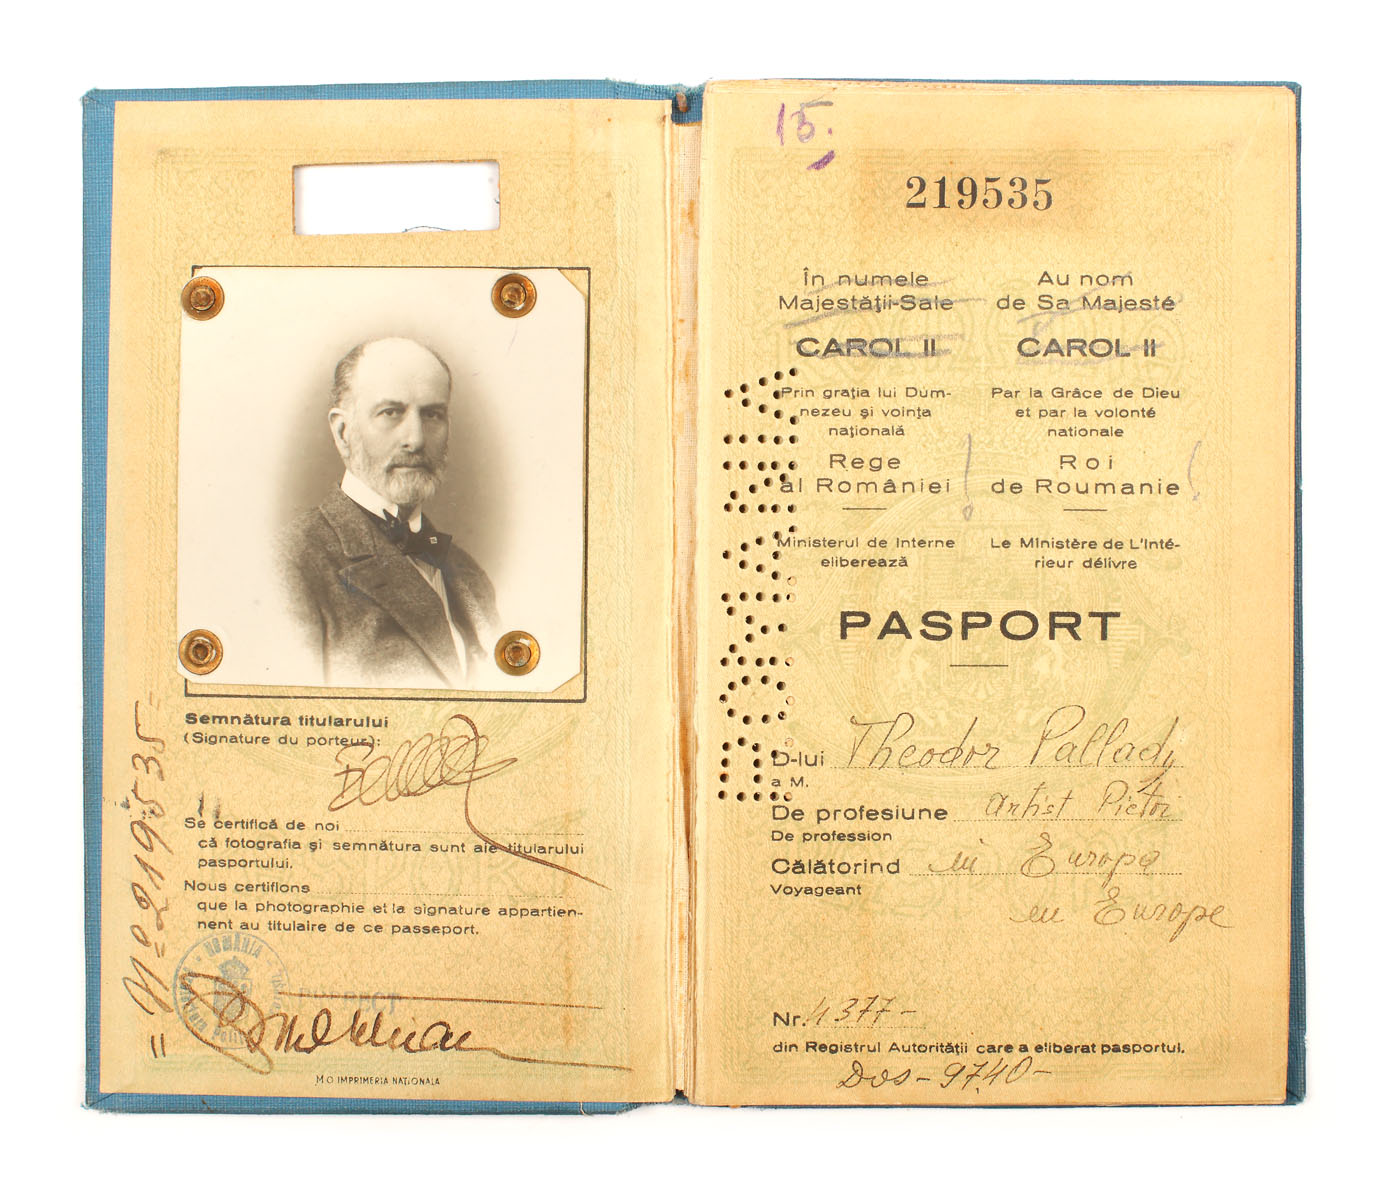 Semnătura titularului
(Signature du porteur):
Se certifică de noi
că fotografia și semnătura sunt ale titularului
pasportului.
Nous certifions
que la photographie et la signature appartien-
nent au titulaire de ce passeport.
= Nº 219535 =
ROMÂNIA
M O IMPRIMERIA NAȚIONALA
15.
219535
În numele
Majestății-Sale
CAROL II
Prin grația lui Dum-
nezeu și voința
națională
Rege
al României !
Ministerul de Interne
eliberează
Au nom
de Sa Majesté
CAROL II
Par la Grâce de Dieu
et par la volonté
nationale
Roi
de Roumanie !
Le Ministère de L'Inté-
rieur délivre
ROMANIA
PASPORT
D-lui Theodor Pallady
a M.
De profesiune artist Pictor
De profession
Călătorind in Europa
Voyageant
en Europe
Nr. 4377 -
din Registrul Autorității care a eliberat pasportul.
Dos - 9740 -